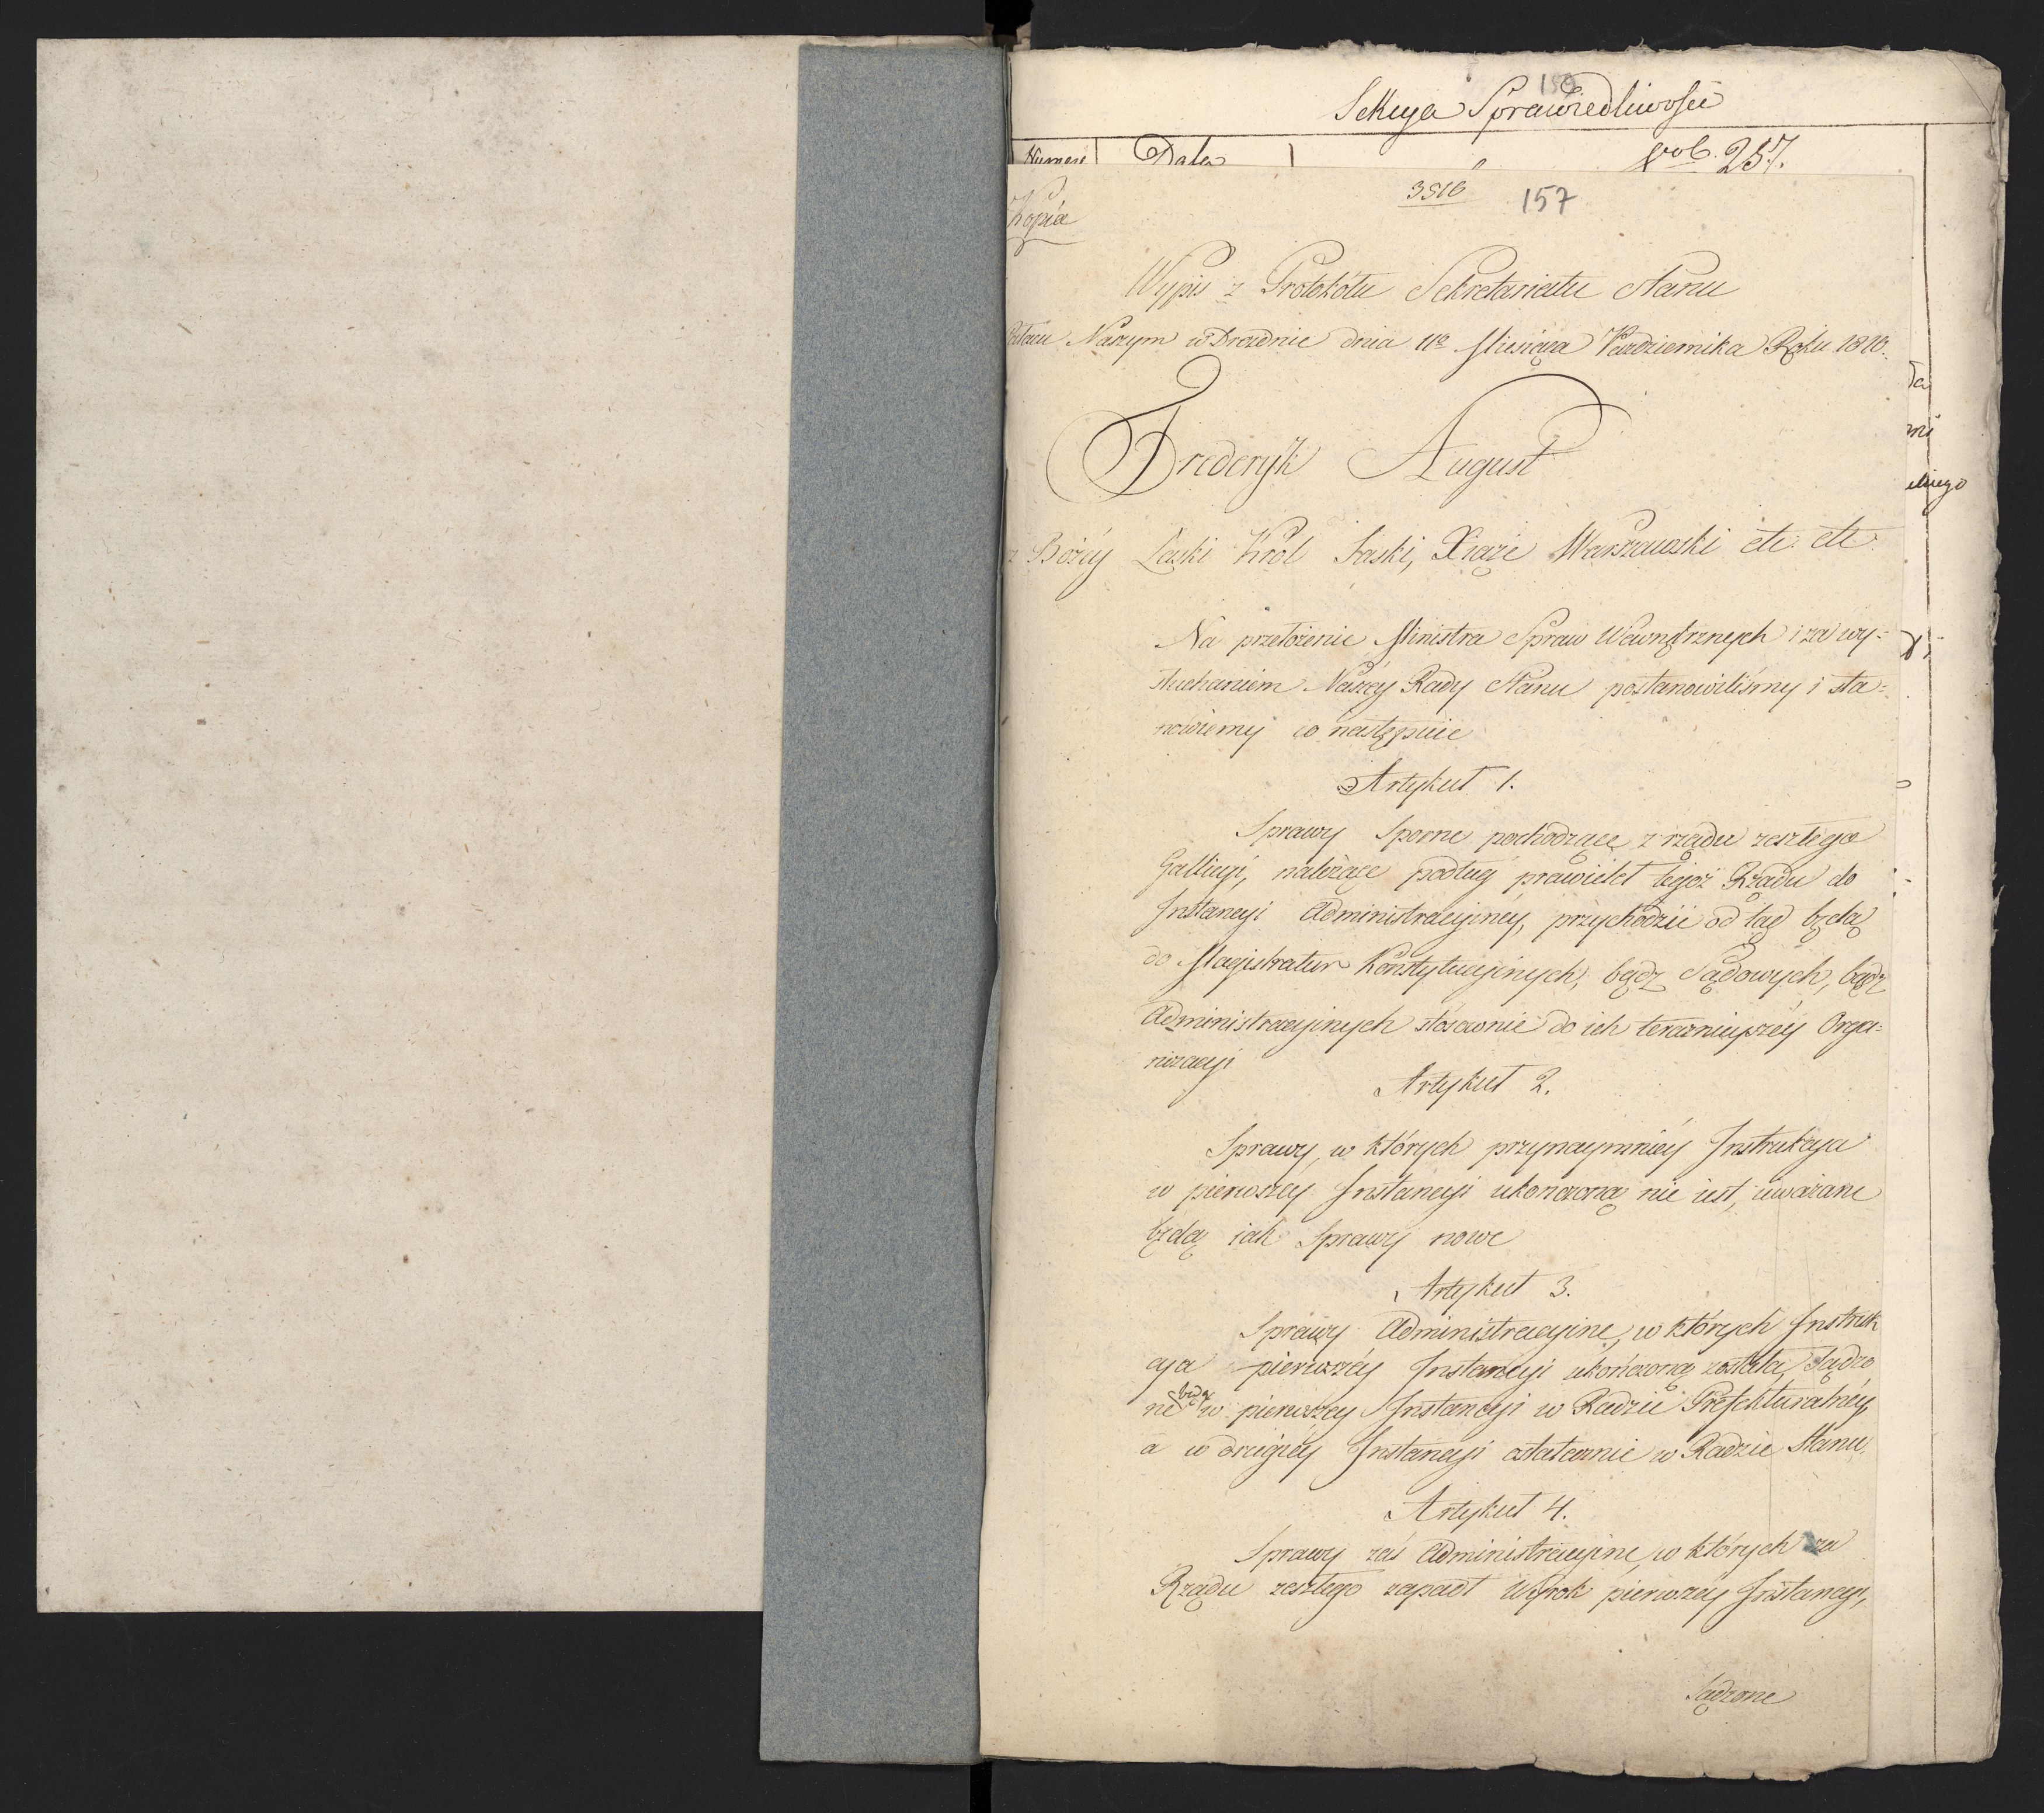 159
Sekcya Sprawiedliwości
Numer Data vol. 257.
3516 157
Kopia
Wypis z Protokółu Sekretariatu Stanu
Pałacu Naszym w Dreźnie dnia 11º Miesiąca Października Roku 1810.
Fryderyk August
z Bożéy Łaski Król Saski, Xiąże Warszawski etc. etc.
Na przełożenie Ministra Spraw Wewnętrznych i za wy=
słuchaniem Naszéy Rady Stanu postanowiliśmy i sta=
nowiemy co następuie
Artykuł 1.
Sprawy Sporne pochodzące z rządu zeszłego
Gallicyi, należące podług prawideł tegoż Rządu do
Instancyi Administracyinéy, przychodzić od tąd będą
do Magistratur Konstytucyinych, bądz Sądowych, bądz
Administracyinych stosownie do ich teraznieyszéy Orga=
nizacyi
Artykuł 2.
Sprawy, w których przynaymniéy Instrukcya
w pierwszey Instancyi ukończoną nie iest, uważane
będą iak Sprawy nowe
Artykuł 3.
Sprawy Administracyine, w których Instruk
cya pierwszéy Instancyi ukończoną została, Sądzo
ne będą w pierwszey Instancyi w Radzie Prefekturalnéy,
a w drugiéy Instancyi ostatecznie w Radzie Stanu.
Artykuł 4.
Sprawy zaś Administracyine, w których za
Rządu zeszłego zapadł Wyrok pierwszéy Instancyi,
Sądzone